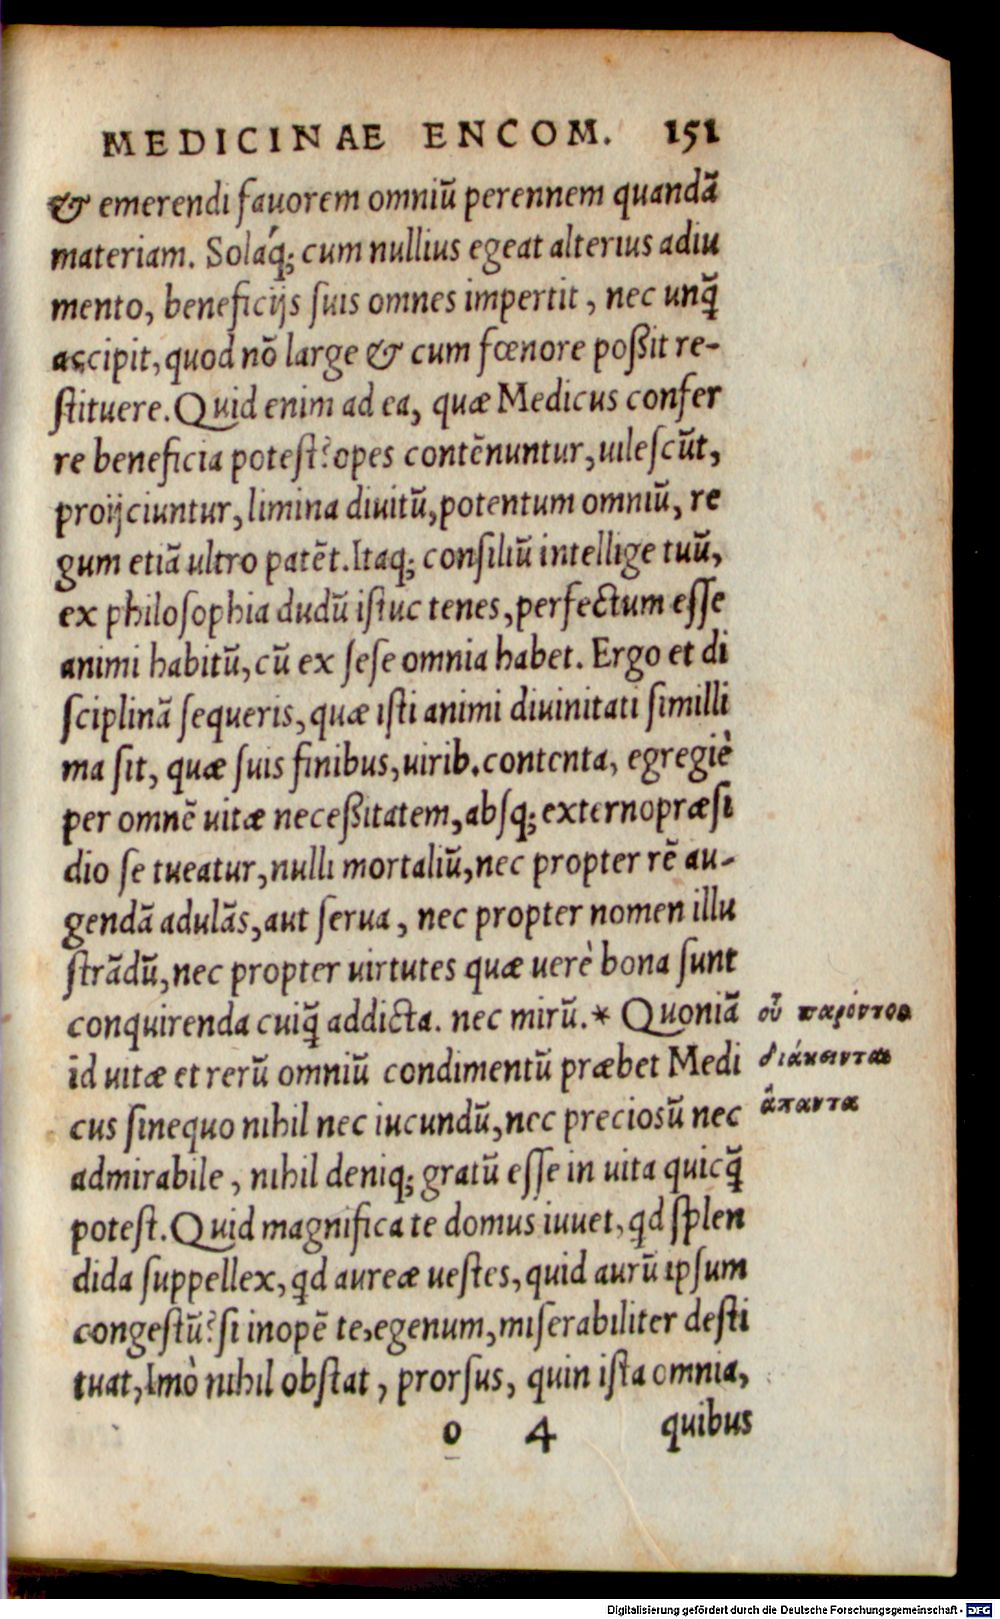 MEDICINAE ENCOM. 151
& emerendi fauorem omniū perennem quandā
materiam. Solaq́; cum nullius egeat alterius adiu
mento, beneficijs suis omnes impertit, nec unq̃
accipit, quod nō large & cum fœnore poßit re-
stituere. Quid enim ad ea, quæ Medicus confer
re beneficia potest? opes contēnuntur, uilescūt,
proijciuntur, limina diuitū, potentum omniū, re
gum etiā ultro patēt. Itaq; consiliū intellige tuū,
ex philosophia dudū istuc tenes, perfectum esse
animi habitū, cū ex sese omnia habet. Ergo et di
sciplinā sequeris, quæ isti animi diuinitati simili
ma sit, quæ suis finibus, uirib. contenta, egregiè
per omnē uitæ neceßitatem, absq; externo præsi
dio se tueatur, nulli mortaliū, nec propter rē au-
gendā adulās, aut serua, nec propter nomen illu
strādū, nec propter uirtutes quæ uerè bona sunt
conquirenda cuiq̃ addicta. nec mirū.* Quoniā
id uitæ et rerū omniū condimentū præbet Medi
cus sinequo nihil nec iucundū, nec preciosū nec
admirabile, nihil deniq; gratū esse in uita quicq̃
potest. Quid magnifica te domus iuuet, qd splen
dida suppellex, qd aureæ uestes, quid aurū ipsum
congestū? si inopē te, egenum, miserabiliter desti
tuat, Imò nihil obstat, prorsus, quin ista omnia,
o 4 quibus
οὗ παρόντος
διάκεινται
ἅπαντα
Digitalisierung gefördert durch die Deutsche Forschungsgemeinschaft - DFG